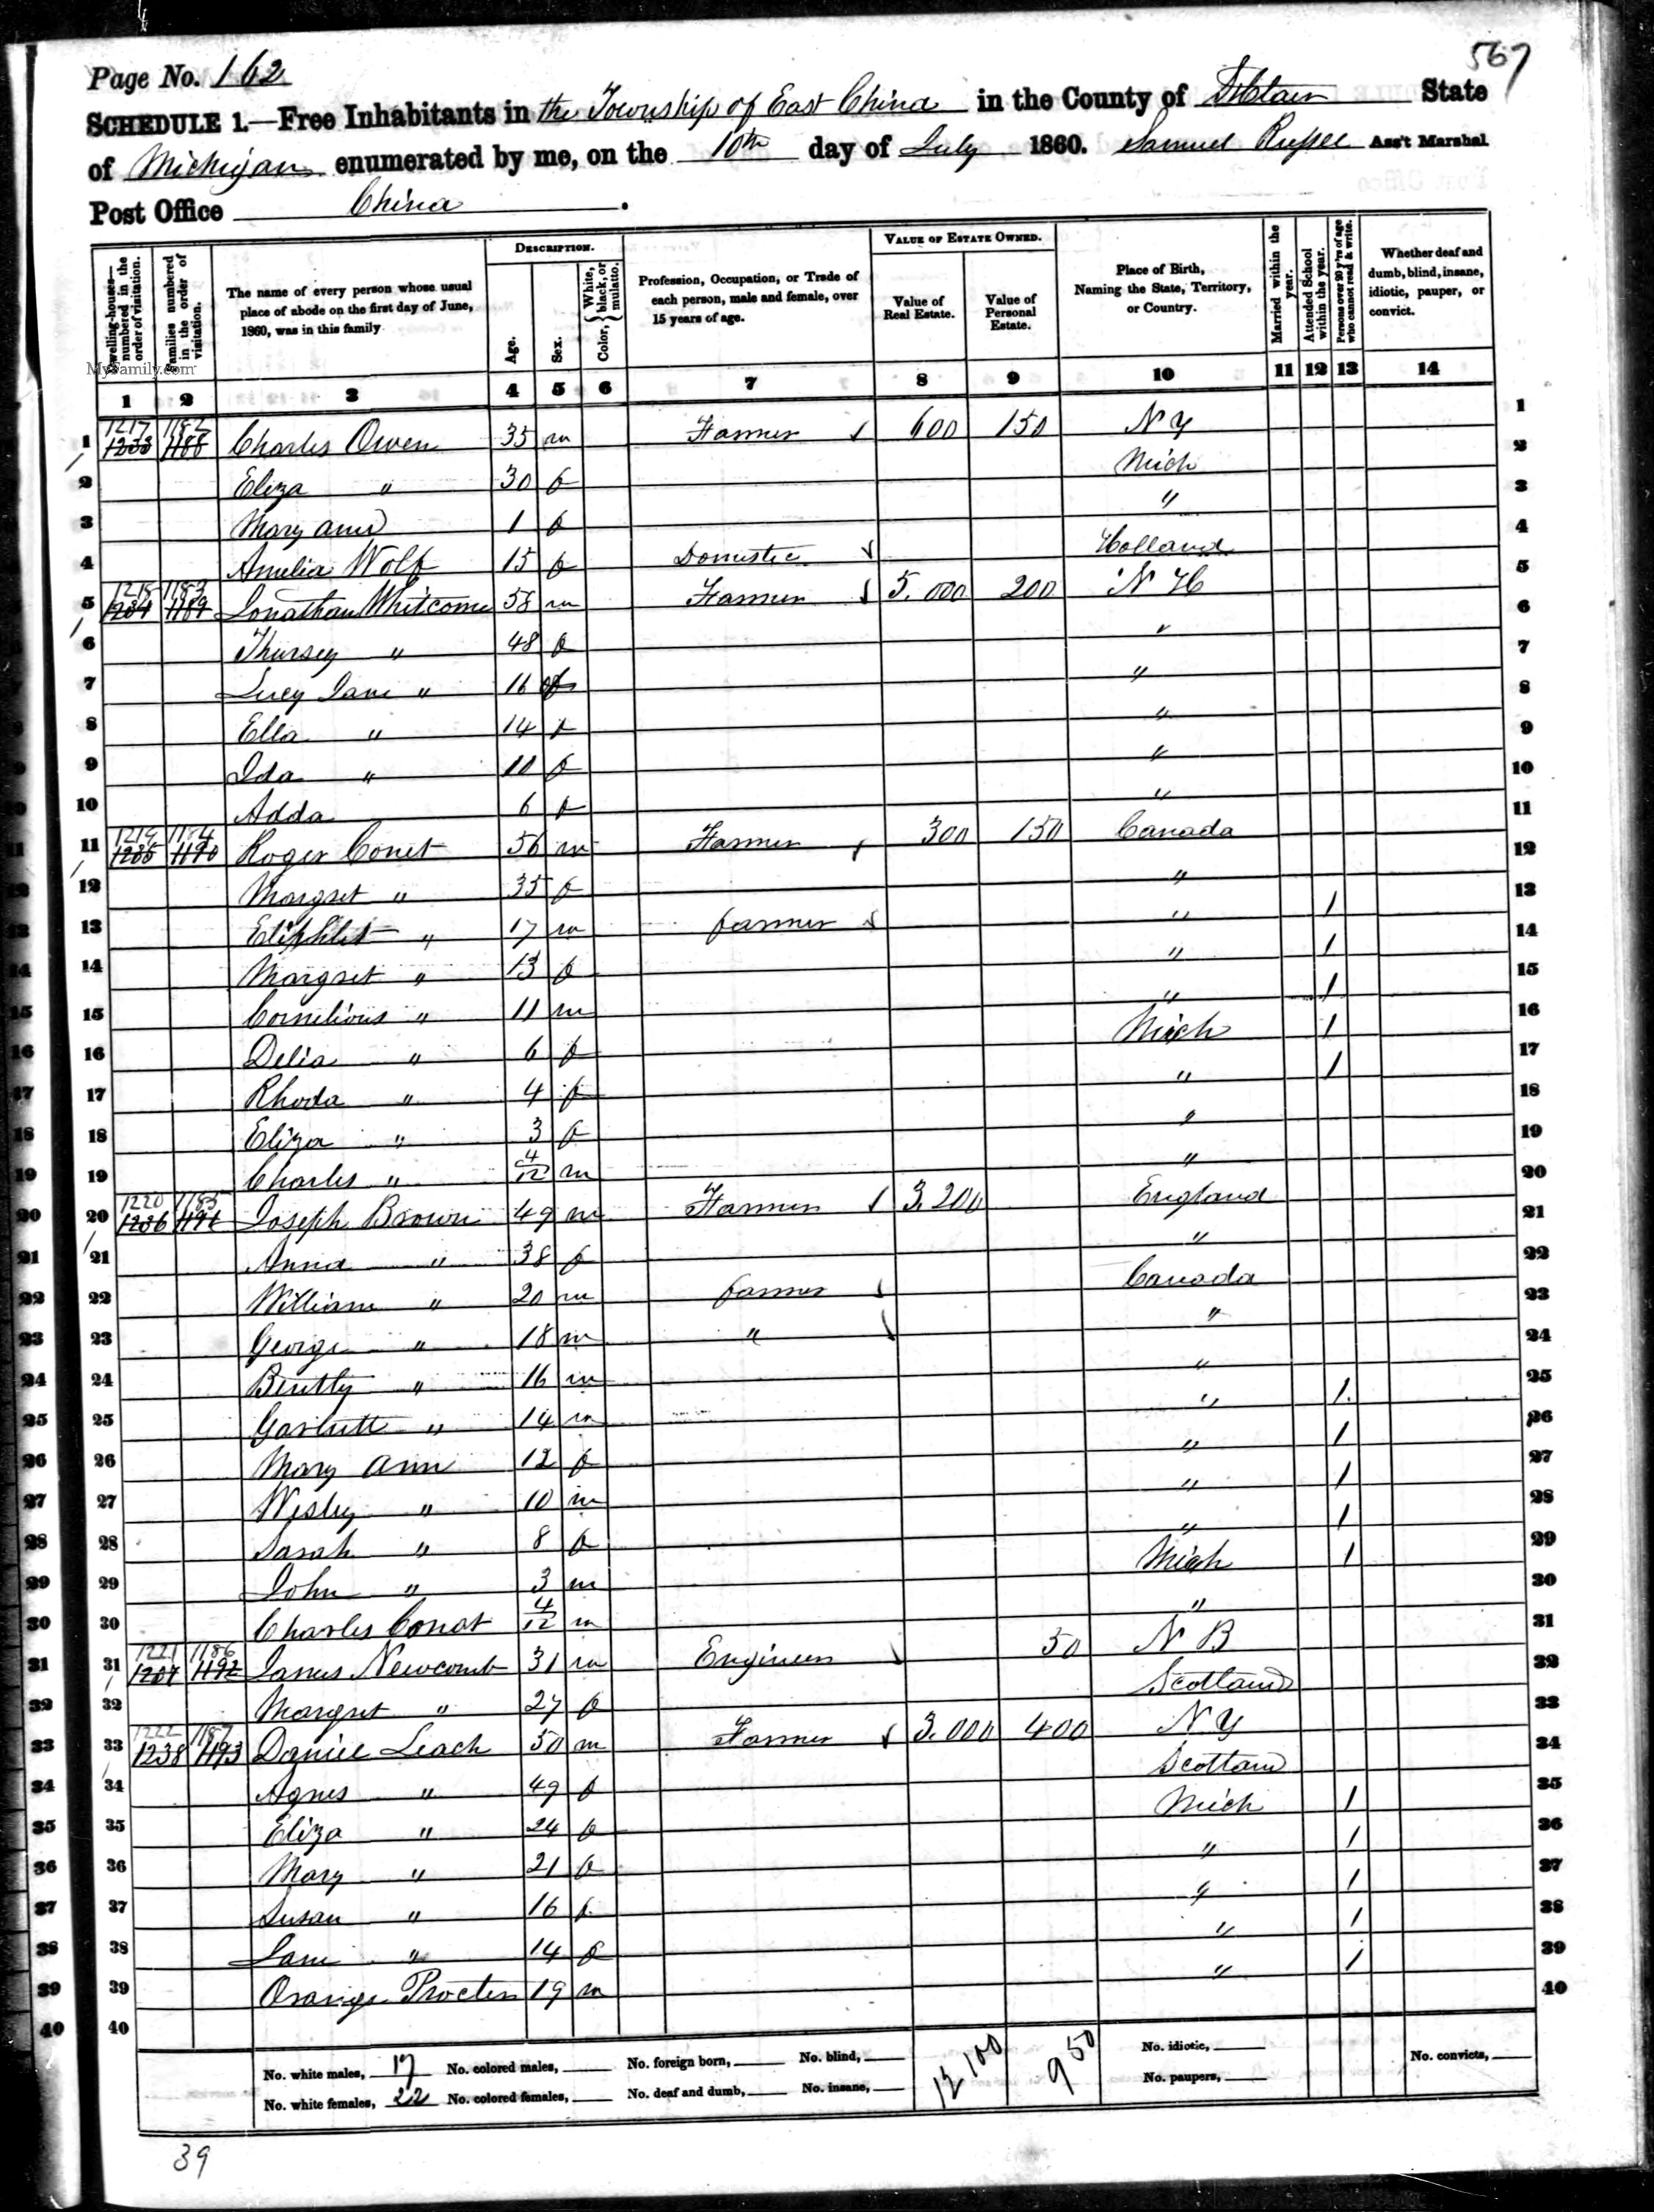 567
Page No. 162
SCHEDULE 1.—Free Inhabitants in the Township of East China in the County of St Clair State
of Michigan enumerated by me, on the 10th day of July 1860. Samuel Russel Ass't Marshal
Post Office China.
Dwelling-houses—numbered in the order of visitation.
Families numbered in the order of visitation.
The name of every person whose usual place of abode on the first day of June, 1860, was in this family
DESCRIPTION.
Age.
Sex.
Color, {White, black, or mulatto.
Profession, Occupation, or Trade of each person, male and female, over 15 years of age.
VALUE OF ESTATE OWNED.
Value of Real Estate.
Value of Personal Estate.
Place of Birth, Naming the State, Territory, or Country.
Married within the year.
Attended School within the year.
Persons over 20 y'rs of age who cannot read & write.
Whether deaf and dumb, blind, insane, idiotic, pauper, or convict.
MyFamily.com
1 2 3 4 5 6 7 8 9 10 11 12 13 14
1 1217 1182 1233 1188 Charles Owen 35 m Farmer 600 150 N Y 1
2 Eliza " 30 f Mich 2
3 Mary Ann 1 f " 3
4 Amelia Wolf 15 f Domestic Holland 4
5 1218 1183 1234 1189 Jonathan Whitcome 58 m Farmer 5.000 200 N H 5
6 Thursey " 48 f " 6
7 Lucy Jane " 16 f " 7
8 Ella " 14 f " 8
9 Ida " 10 f " 9
10 Adda 6 f " 10
11 1219 1184 1235 1190 Roger Conet 56 m Farmer 300 150 Canada 11
12 Margret " 35 f " 12
13 Eliphlet " 17 m farmer " 1 13
14 Margret " 13 f " 1 14
15 Cornelious " 11 m " 1 15
16 Delia " 6 f Mich 1 16
17 Rhoda " 4 f " 1 17
18 Eliza " 3 f " 18
19 Charles " 4/12 m " 19
20 1220 1185 1236 1191 Joseph Brown 49 m Farmer 3.200 England 20
21 Anna " 38 f " 21
22 William " 20 m farmer Canada 22
23 George " 18 m " " 23
24 Bently " 16 m " 24
25 Garbutt " 14 m " 1 25
26 Mary Ann 12 f " 1 26
27 Wesley " 10 m " 1 27
28 Sarah " 8 f " 1 28
29 John " 3 m Mich 1 29
30 Charles Conat 4/12 m " 30
31 1221 1186 1237 1192 James Newcomb 31 m Engineer 50 N B 31
32 Margret " 27 f Scotland 32
33 1222 1187 1238 1193 Daniel Leach 50 m Farmer 3.000 400 N Y 33
34 Agnes " 49 f Scotland 34
35 Eliza " 24 f Mich 1 35
36 Mary " 21 f " 1 36
37 Susan " 16 f " 1 37
38 Jane " 14 f " 1 38
39 Orange Procter 19 m " 1 39
40 40
No. white males, 17 No. colored males, No. foreign born, No. blind, 12100 950 No. idiotic, No. convicts,
No. white females, 22 No. colored females, No. deaf and dumb, No. insane, No. paupers,
39